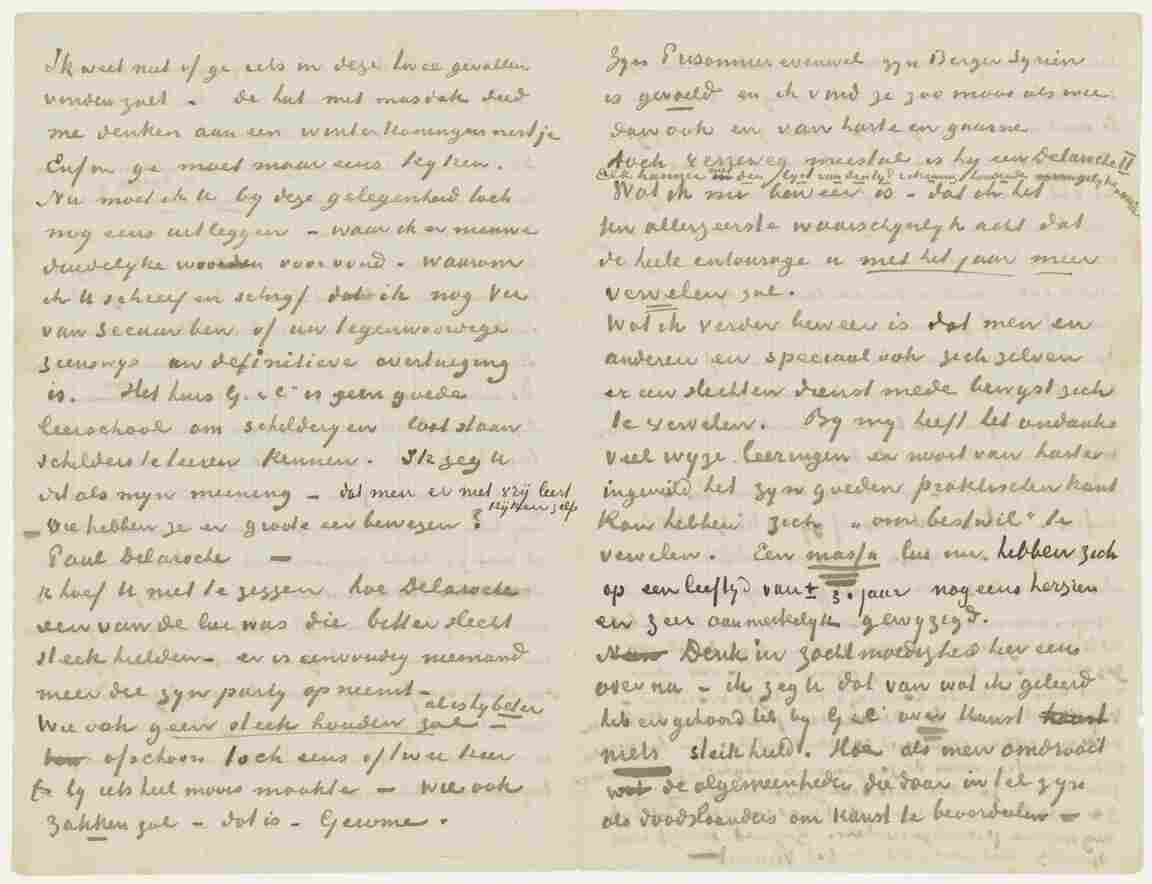 Ik weet niet of ge iets in deze twee gevallen
vinden zult – de hut met mosdak deed
me denken aan een winterkoningennestje
Enfin ge moet maar eens zien.
Nu moet ik U by deze gelegenheid toch
nog eens uitleggen – waar ik er nieuwe
duidelyke woorden voor vond. waarom
ik U schreef en schryf dat ik nog ver
van secuur ben of uw tegenwoordige
zienswys uw definitieve overtuiging
is. Het huis G. & C.o is geen goede
leerschool om schilderyen laat staan
schilders te leeren kennen. Ik zeg U
dit als myn meening – dat men er niet vrij leert
kijken zelfs
– Wie hebben ze er groote eer bewezen?
Paul Delaroche –
ik hoef U niet te zeggen hoe Delaroche
een van de lui was die bitter slecht
steek hielden – er is eenvoudig niemand
meer die zyn party opneemt –
al is hy beter
Wie ook geen steek houden zal –
ofschoon toch eens of twee keer
hy iets heel moois maakte – wie ook
zakken zal – dat is – Gerome.
Zyn Prisonnier evenwel zyn Berger Syrien
is gevoeld en ik vind ze zoo mooi als wie
dan ook en van harte en gaarne.
doch verreweg meestal is hy een Delaroche II
Wat ik nu beweer is – dat ik het
ten allerzeerste waarschynlyk acht dat
de heele entourage u met het jaar meer
vervelen zal.
Wat ik verder beweer is dat men en
anderen en speciaal ook zich zelven
er een slechten dienst mede bewyst zich
te vervelen. By my heeft het ondanks
veel wyze leeringen er nooit van harte
ingewild het zyn goeden praktischen kant
kan hebben zich „om bestwil” te
vervelen. Een massa lui nu, hebben zich
op een leeftyd van ± 30 jaar nog eens herzien
en zeer aanmerkelyk gewyzigd.
Denk in zachtmoedigheid hier eens
over na – ik zeg U dat van wat ik geleerd
heb en gehoord heb by G & C.o over kunst kunst
niets steek hield. Hoe als men omdraait
wat de algemeenheden die daar in tel zyn
als doodsloanders om kunst te beoordeelen –